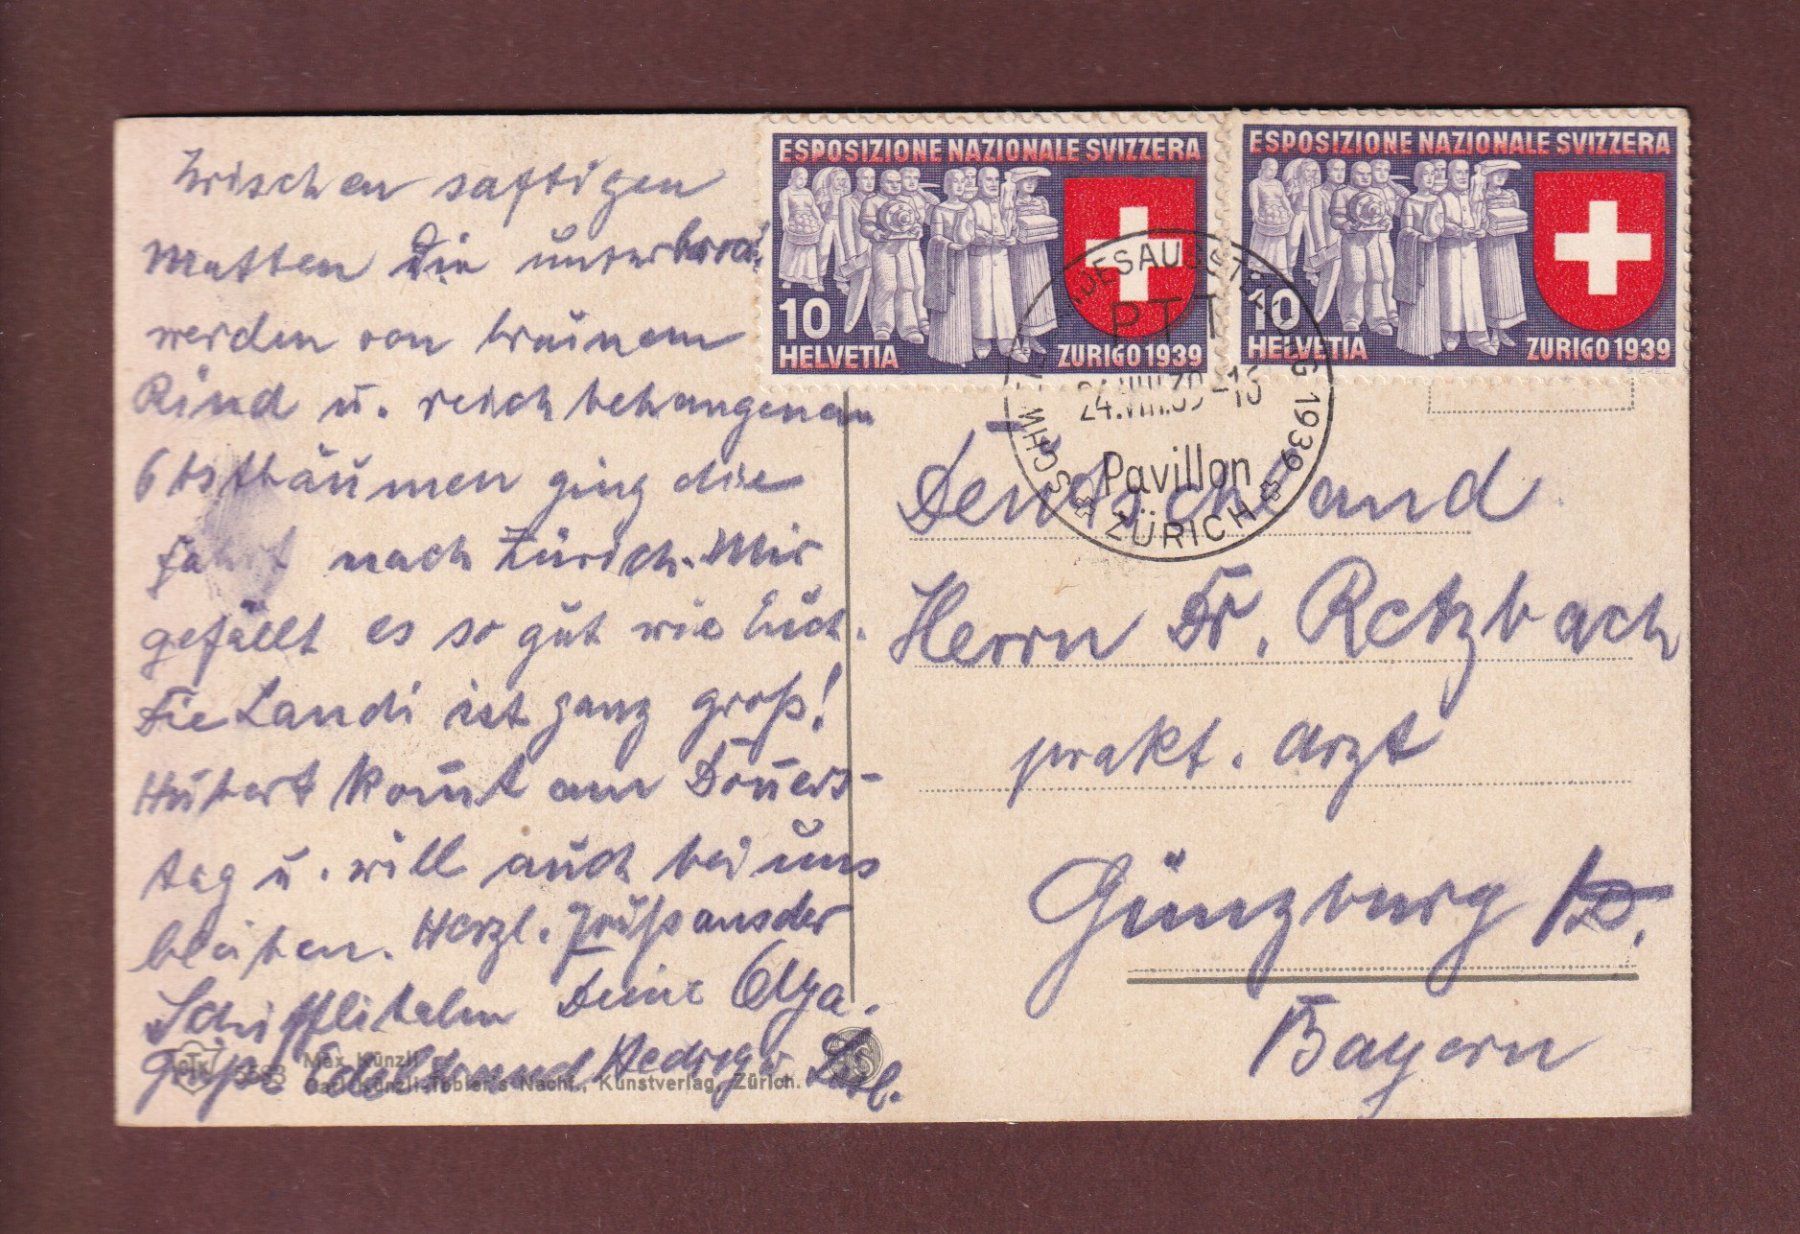 Zwischen saftigen
Matten die unterbroch.
werden von braunem
Rind u. reich behangenen
Obstbäumen ging die
Fahrt nach Zürich. Mir
gefällt es so gut wie Euch.
Die Landi ist ganz groß!
Hubert kom̅t am Don̅ers-
tag u. will auch bei uns
bleiben. Herzl. Grüße aus der
Deine Olga.
Grüße Hedwig u.
5583 Max Künzli
Carl Künzli-Tobler's Nachf., Kunstverlag, Zürich.
ESPOSIZIONE NAZIONALE SVIZZERA
10
HELVETIA
ZURIGO 1939
ESPOSIZIONE NAZIONALE SVIZZERA
10
HELVETIA
ZURIGO 1939
SCHWEIZ. LANDESAUSSTELLUNG 1939
PTT
24.VIII.39-13
Pavillon
ZÜRICH
Deutschland
Herrn Dr. Retzbach
prakt. Arzt
Günzburg a/D.
Bayern